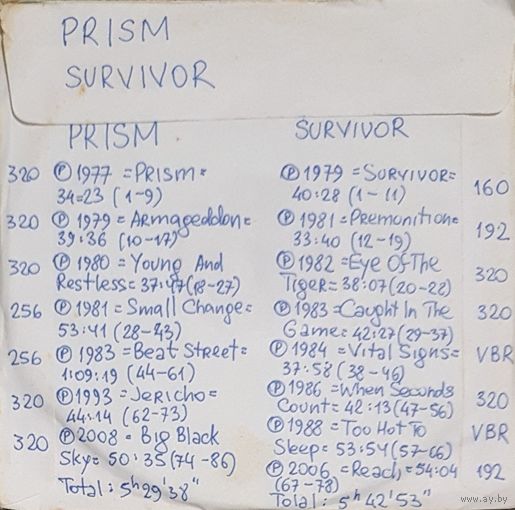 PRISM
SURVIVOR
PRISM
320 Ⓟ 1977 =PRISM=
34=23 (1-9)
320 Ⓟ 1979 = ARMAgeddon=
39:36 (10-17)
320 Ⓟ 1980 = Young And
Restless= 37:47(18-27)
256 Ⓟ 1981 = Small Change=
53:41 (28-43)
256 Ⓟ 1983 =Beat Street=
1:09:19 (44-61)
320 Ⓟ 1993 =Jericho=
44:14 (62-73)
320 Ⓟ 2008 = Big Black
Sky= 50:35(74-86)
Total: 5h 29'38"
SURVIVOR
Ⓟ 1979 = SURVIVOR= 160
40:28 (1-11)
Ⓟ 1981 = Premonition= 192
33:40 (12-19)
Ⓟ 1982 =Eye Of The 320
Tiger= 38:07(20-28)
Ⓟ 1983 =Caught In The 320
Game= 42:27(29-37)
Ⓟ 1984 =Vital Signs= VBR
37:58 (38-46)
Ⓟ 1986 =When Seconds 320
Count= 42:13(47-56)
Ⓟ 1988 =Too Hot To VBR
Sleep= 53:54(57-66)
Ⓟ 2006 =Reach=54:04 192
(67-78)
Total: 5h 42'53"
www.ay.by